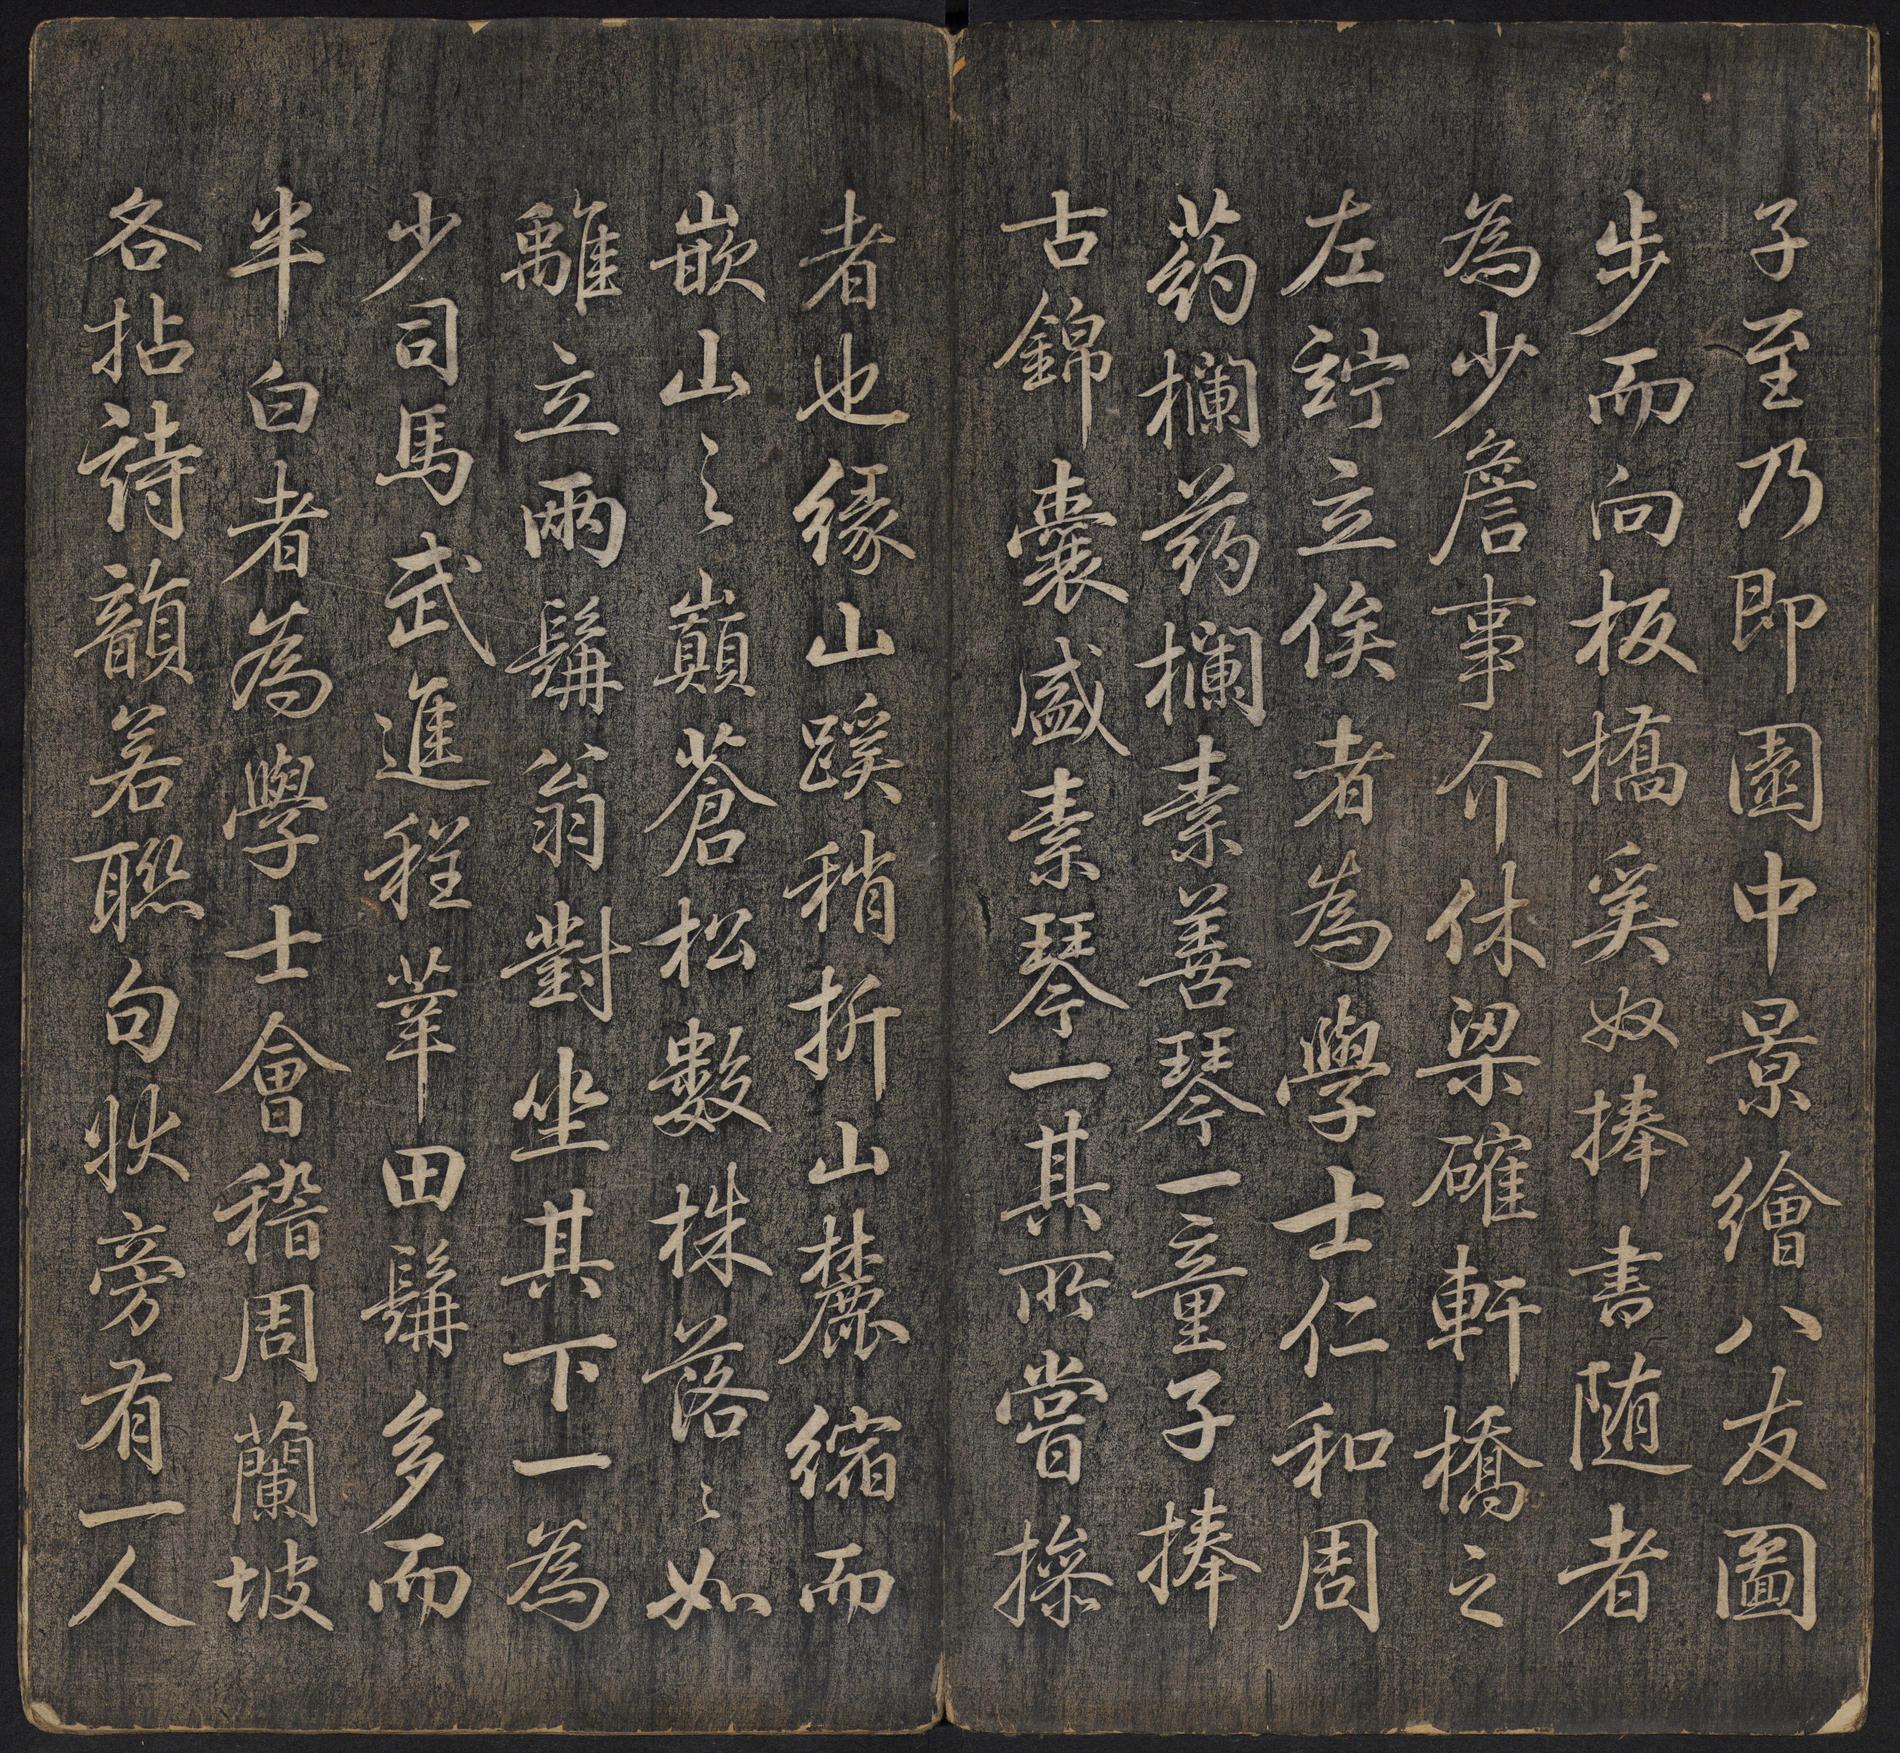 子至乃即園中景繪八友圖
步而向板橋奚奴捧書隨者
為少詹事介休梁確軒橋之
左竚立俟者為學士仁和周
葯欄葯欄素善琴一童子捧
古錦囊盛素琴一其所嘗操
者也緣山蹊稍折山麓縮而
嵌山之巔蒼松數株落〻如
離立兩鬅翁對坐其下一為
少司馬武進程莘田鬅多而
半白者為學士會稽周蘭坡
各拈詩韻若聯句狀旁有一人